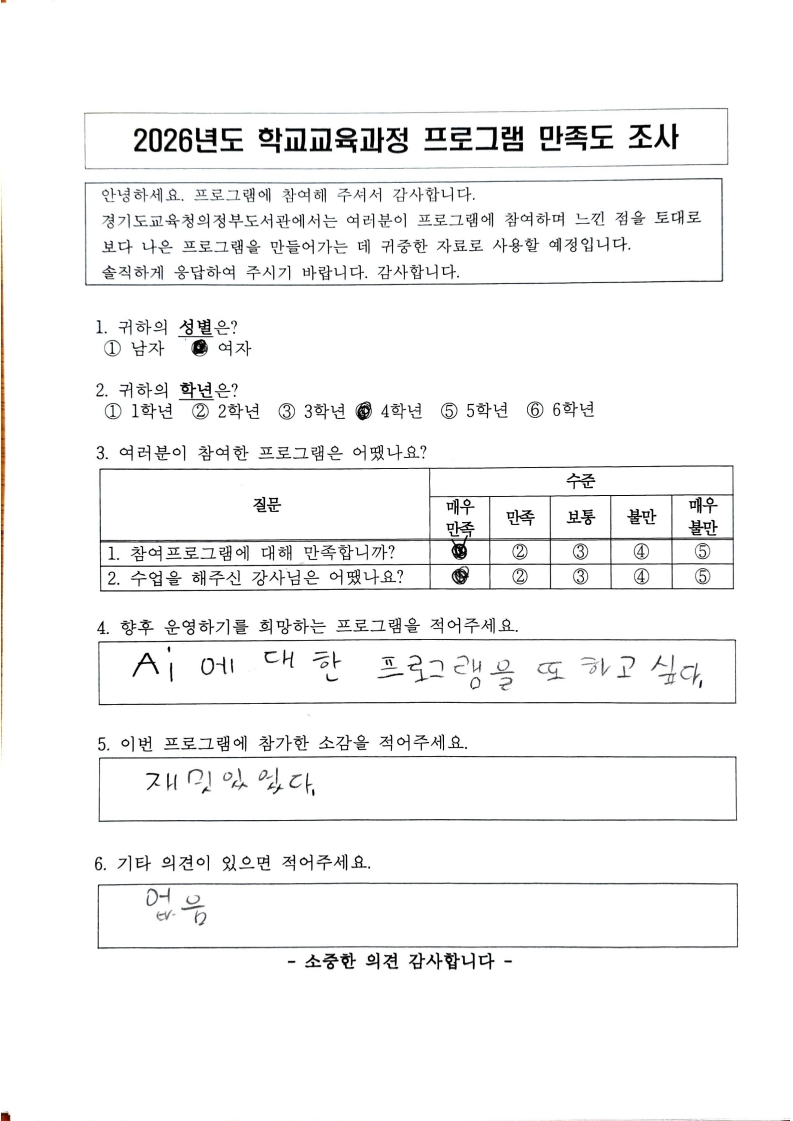 2026년도 학교교육과정 프로그램 만족도 조사
안녕하세요. 프로그램에 참여해 주셔서 감사합니다.
경기도교육청의정부도서관에서는 여러분이 프로그램에 참여하며 느낀 점을 토대로
보다 나은 프로그램을 만들어가는 데 귀중한 자료로 사용할 예정입니다.
솔직하게 응답하여 주시기 바랍니다. 감사합니다.
1. 귀하의 성별은?
① 남자 여자
2. 귀하의 학년은?
① 1학년 ② 2학년 ③ 3학년 ④ 4학년 ⑤ 5학년 ⑥ 6학년
3. 여러분이 참여한 프로그램은 어땠나요?
질문 수준
매우 만족 만족 보통 불만 매우 불만
1. 참여프로그램에 대해 만족합니까? ② ③ ④ ⑤
2. 수업을 해주신 강사님은 어땠나요? ② ③ ④ ⑤
4. 향후 운영하기를 희망하는 프로그램을 적어주세요.
Ai에 대한 프로그램을 또 하고 싶다.
5. 이번 프로그램에 참가한 소감을 적어주세요.
재밌있었다.
6. 기타 의견이 있으면 적어주세요.
없음
- 소중한 의견 감사합니다 -